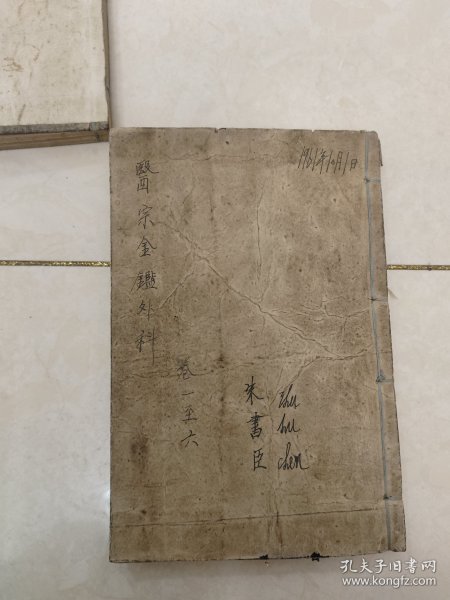 1961年10月1日
醫宗金鑑外科
卷一至六
朱書臣
Chu
hu
chen
孔夫子旧书网
www.kongfz.com